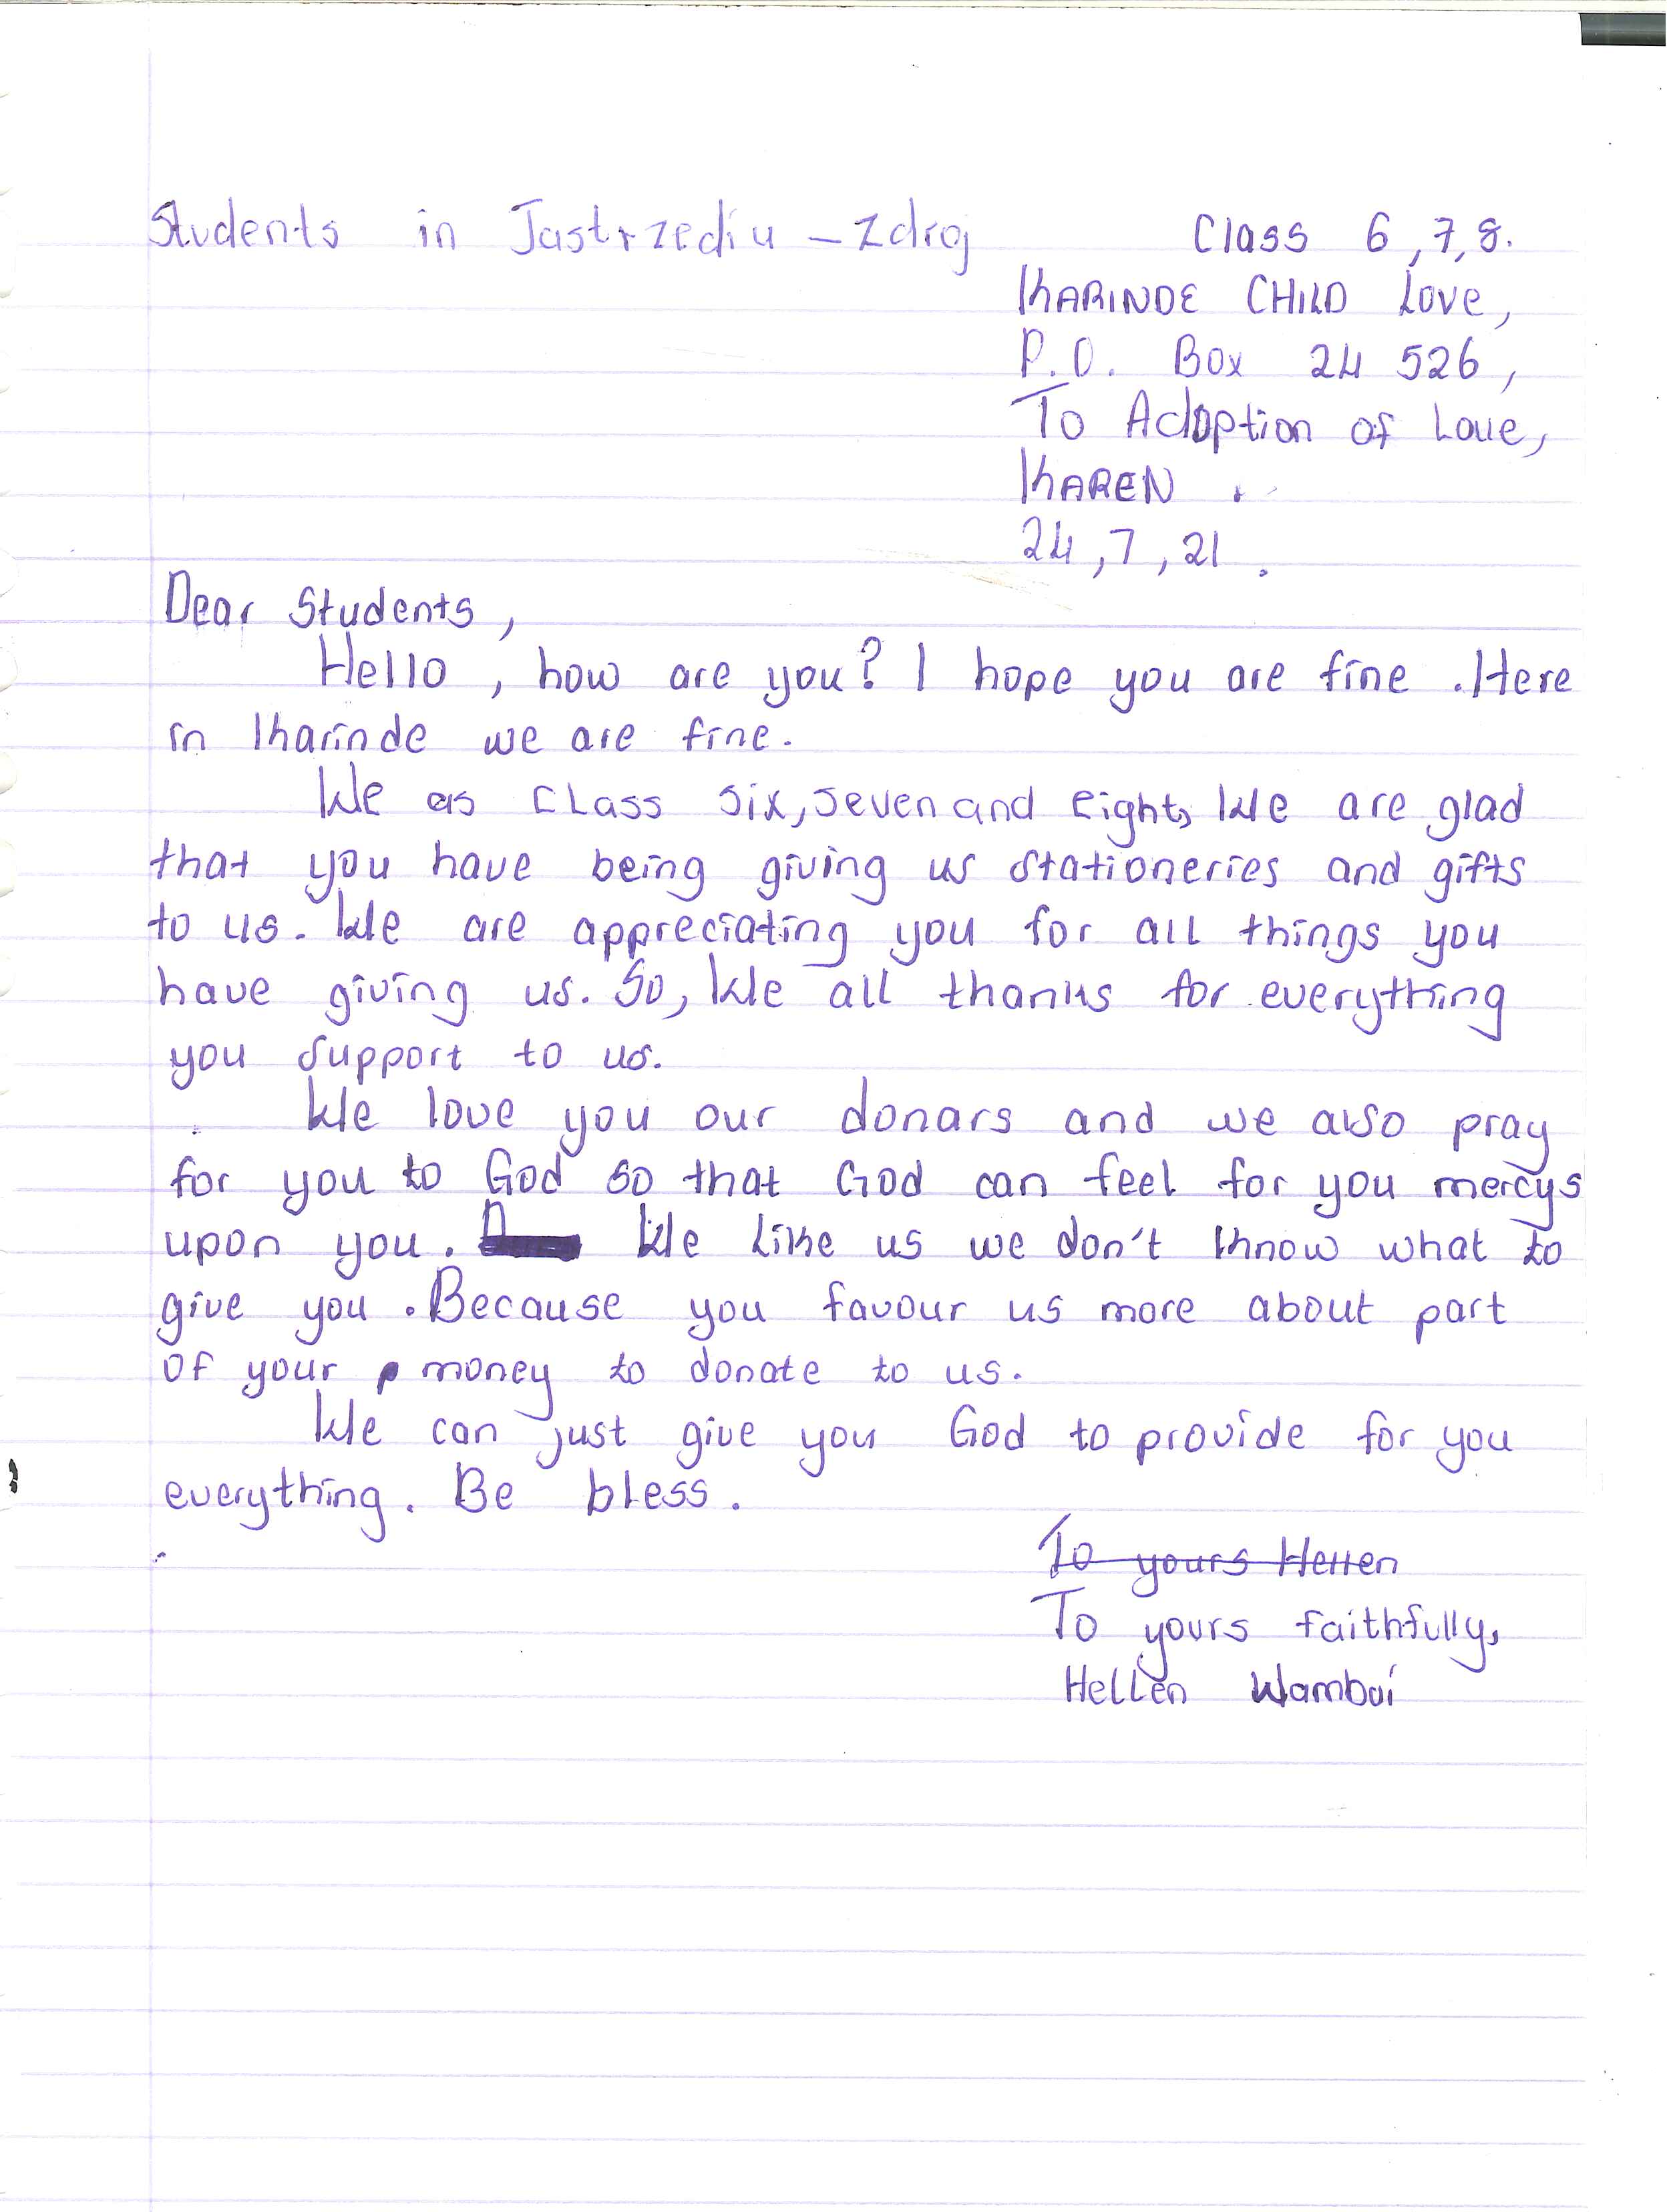 Students in Jastrzediu - zdroj
Class 6,7,8.
KARINDE CHILD Love,
P.O. Box 24 526,
To Adoption of Love,
KAREN.
24,7,21.
Dear Students,
Hello, how are you? I hope you are fine. Here
in Karinde we are fine.
We as Class six, seven and eight, We are glad
that you have being giving us stationeries and gifts
to us. We are appreciating you for all things you
have giving us. So, We all thanks for everything
you support to us.
We love you our donars and we also pray
for you to God so that God can feel for you mercys
upon you. We like us we don't know what to
give you. Because you favour us more about part
of your money to donate to us.
We can just give you God to provide for you
everything. Be bless.
To yours Hellen
To yours faithfully,
Hellen Wamboi